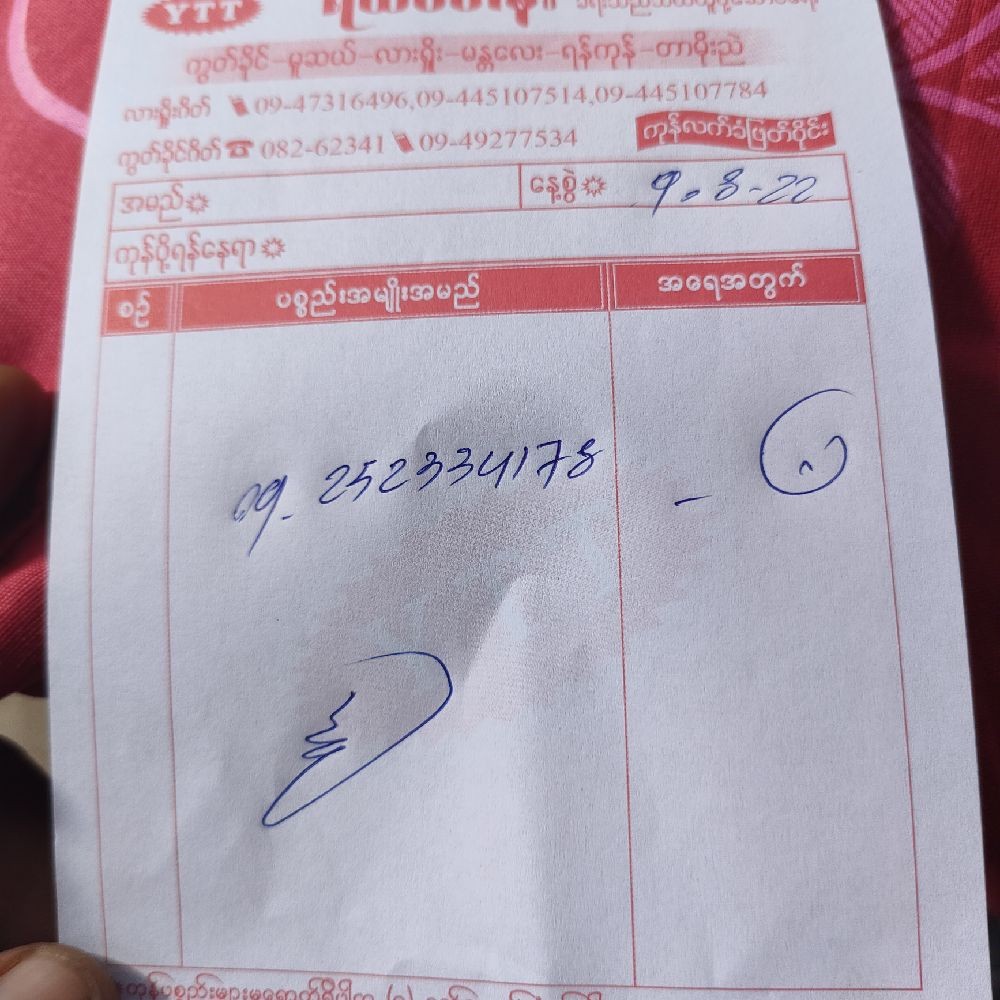 YTT
ကွတ်ခိုင်-မူဆယ်-လားရှိုး-မန္တလေး-ရန်ကုန်-တာမိုးညဲ
လားရှိုးဂိတ် 09-47316496,09-445107514,09-445107784
ကွတ်ခိုင်ဂိတ် 082-62341 09-49277534
ကုန်လက်ခံဖြတ်ပိုင်း
အမည် နေ့စွဲ 9.8-22
ကုန်ပို့ရန်နေရာ
စဉ် ပစ္စည်းအမျိုးအမည် အရေအတွက်
09-252334178 - ၁